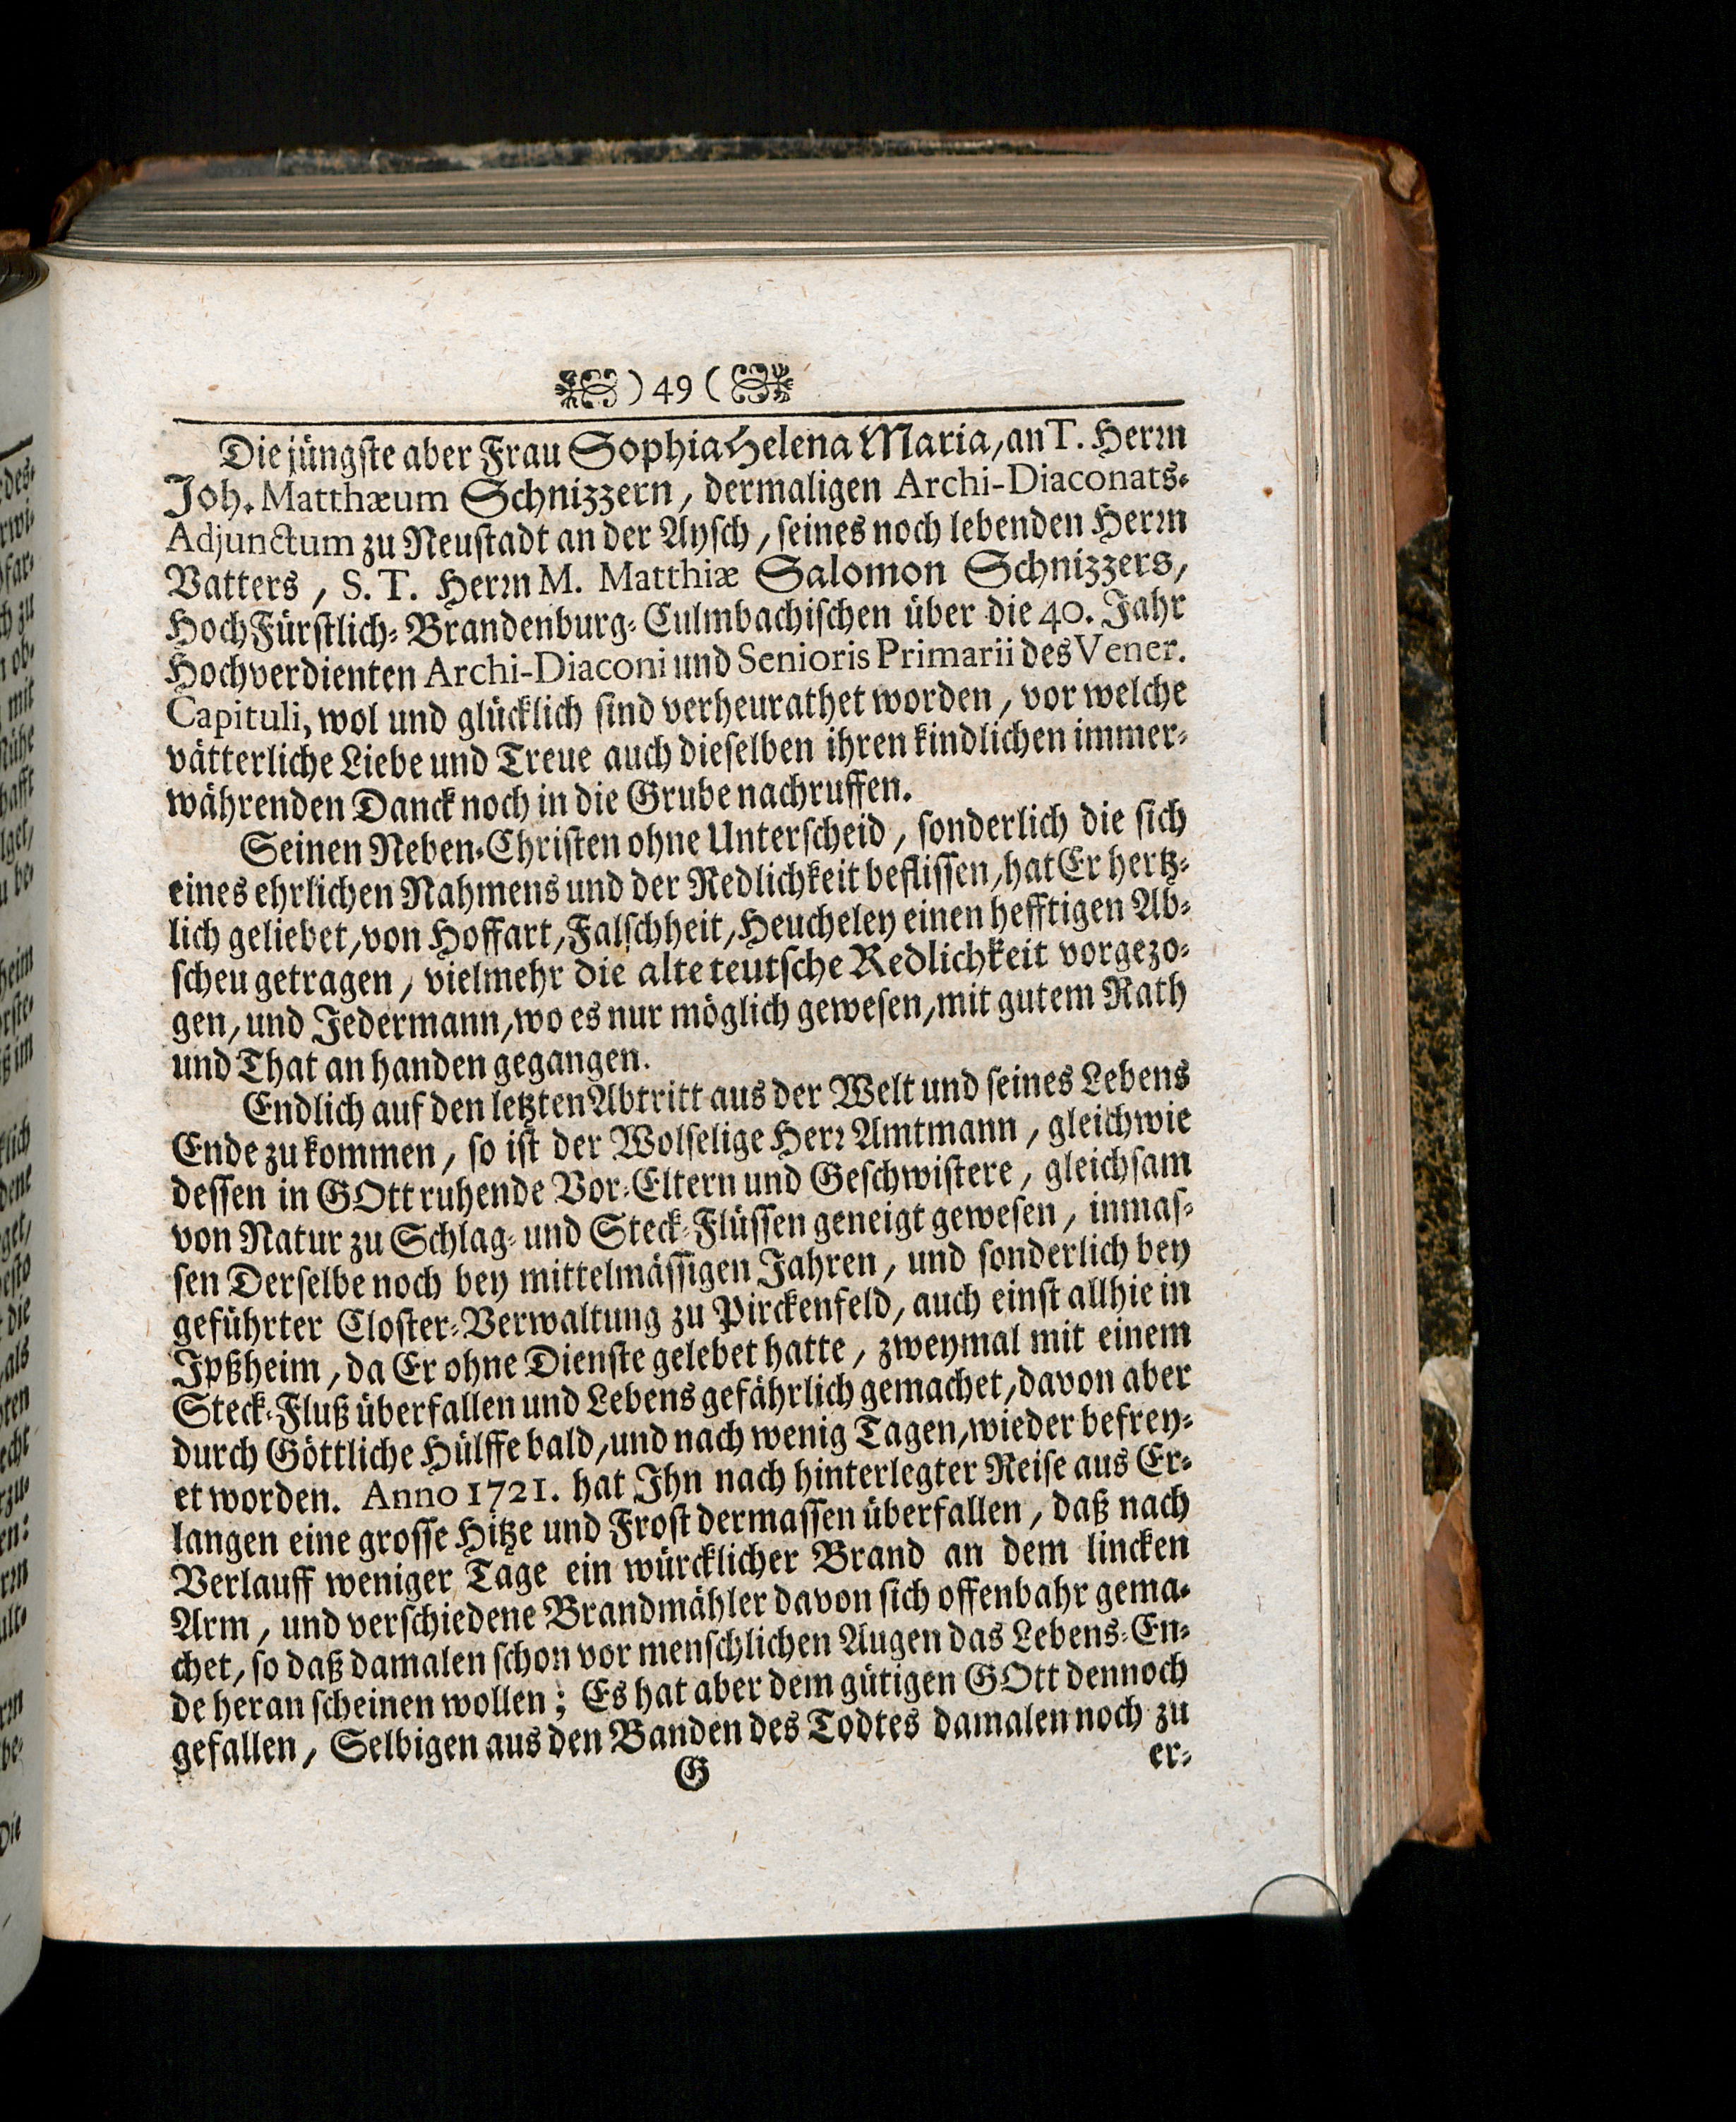 ) 49 (
Die jüngste aber Frau Sophia Helena Maria, an T. Herrn
Joh. Matthæum Schnizzern, dermaligen Archi-Diaconats-
Adjunctum zu Neustadt an der Aysch, seines noch lebenden Herrn
Vatters, S. T. Herrn M. Matthiæ Salomon Schnizzers,
HochFürstlich-Brandenburg-Culmbachischen über die 40. Jahr
Hochverdienten Archi-Diaconi und Senioris Primarii des Vener.
Capituli, wol und glücklich sind verheurathet worden, vor welche
vätterliche Liebe und Treue auch dieselben ihren kindlichen immer-
währenden Danck noch in die Grube nachruffen.
Seinen Neben-Christen ohne Unterscheid, sonderlich die sich
eines ehrlichen Nahmens und der Redlichkeit beflissen, hat Er hertz-
lich geliebet, von Hoffart, Falschheit, Heucheley einen hefftigen Ab-
scheu getragen, vielmehr die alte teutsche Redlichkeit vorgezo-
gen, und Jedermann, wo es nur möglich gewesen, mit gutem Rath
und That an handen gegangen.
Endlich auf den letzten Abtritt aus der Welt und seines Lebens
Ende zu kommen, so ist der Wolselige Herr Amtmann, gleichwie
dessen in GOtt ruhende Vor-Eltern und Geschwistere, gleichsam
von Natur zu Schlag- und Steck-Flüssen geneigt gewesen, inmas-
sen Derselbe noch bey mittelmässigen Jahren, und sonderlich bey
geführter Closter-Verwaltung zu Pirckenfeld, auch einst allhie in
Ipßheim, da Er ohne Dienste gelebet hatte, zweymal mit einem
Steck-Fluß überfallen und Lebens gefährlich gemachet, davon aber
durch Göttliche Hülffe bald, und nach wenig Tagen, wieder befrey-
et worden. Anno 1721. hat Ihn nach hinterlegter Reise aus Er-
langen eine grosse Hitze und Frost dermassen überfallen, daß nach
Verlauff weniger Tage ein würcklicher Brand an dem lincken
Arm, und verschiedene Brandmähler davon sich offenbahr gema-
chet, so daß damalen schon vor menschlichen Augen das Lebens-En-
de heran scheinen wollen; Es hat aber dem gütigen GOtt dennoch
gefallen, Selbigen aus den Banden des Todtes damalen noch zu
G er-